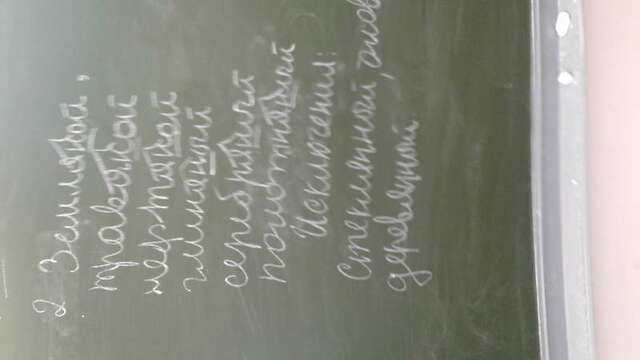 2 Земляной,
травяной
нефтяной
глиняный
серебряный
полотняный
Исключения:
Стеклянный, олов
деревянный